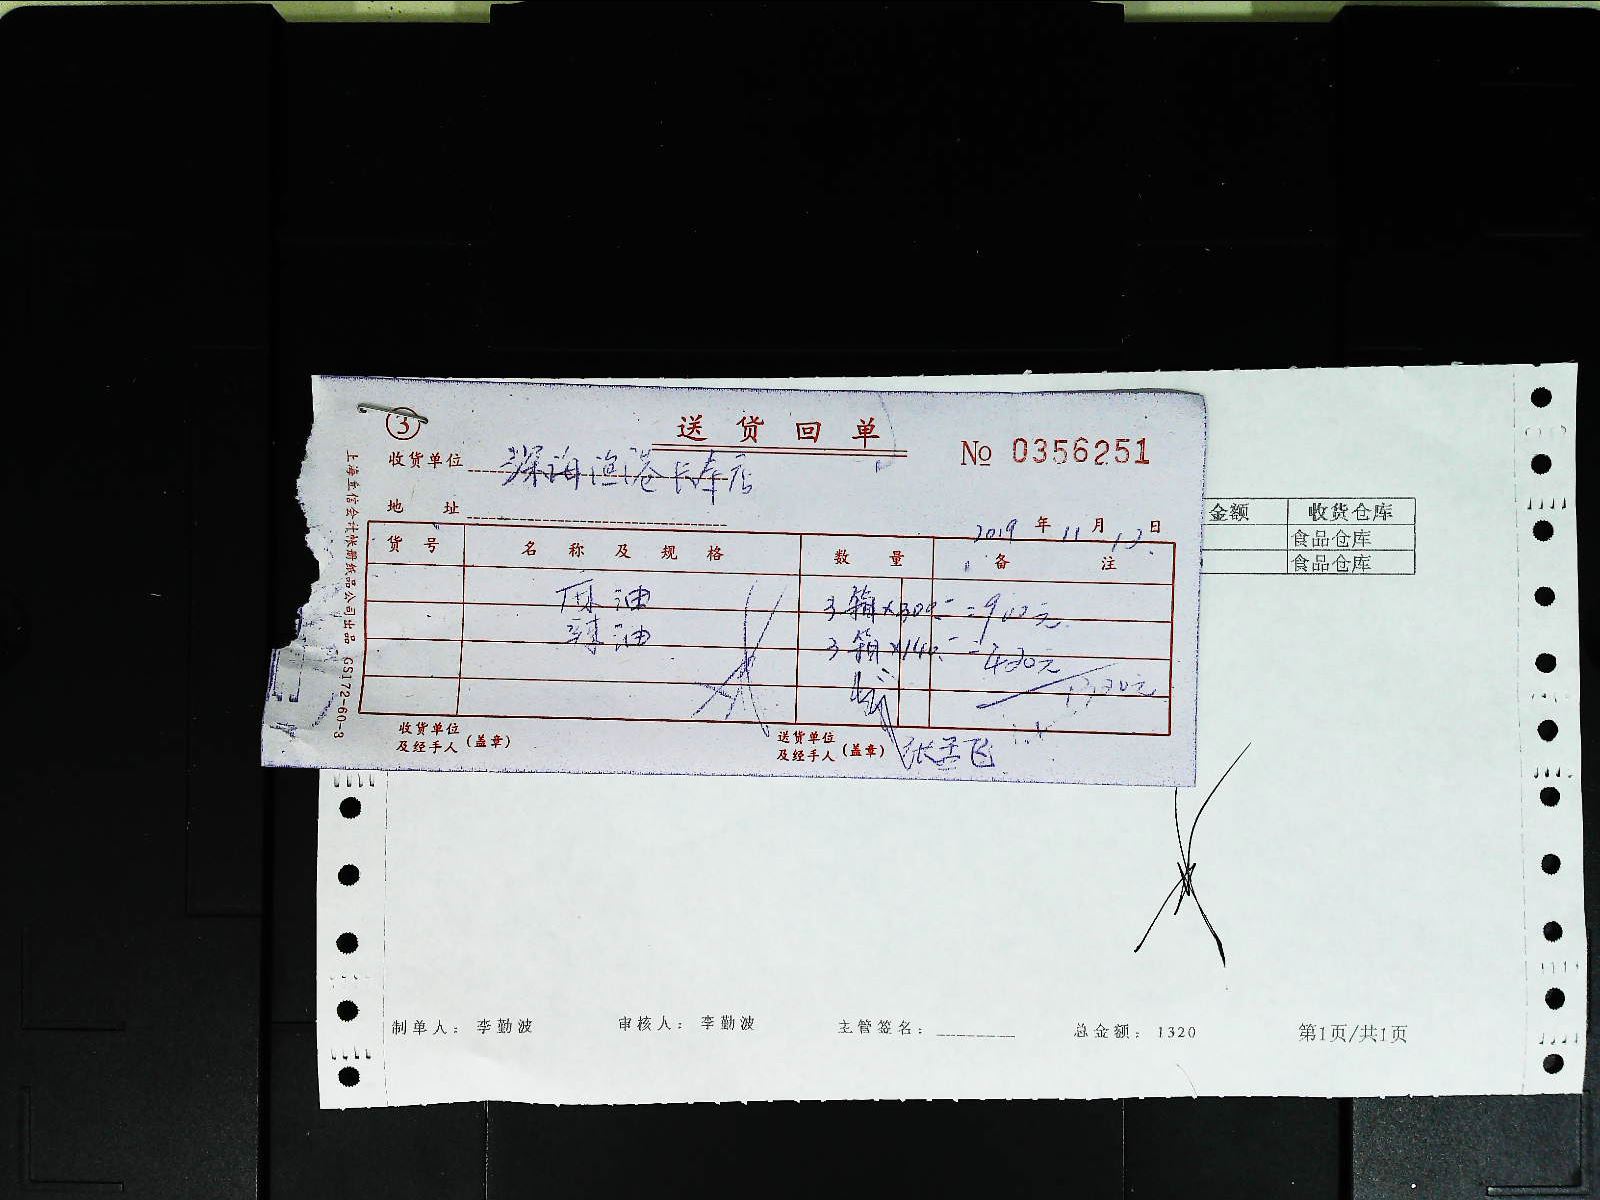 ③
送货回单
№ 0356251
收货单位 深海渔港长寿店
地 址
2019 年 11 月 12 日
货 号 名 称 及 规 格 数 量 备 注
麻油 3箱×300 =900元
辣油 3箱×140 =420元
1320元
收货单位及经手人(盖章)
送货单位及经手人(盖章) 张孟飞
GS172-60-3
金额 收货仓库
食品仓库
食品仓库
制单人： 李勤波 审核人： 李勤波 主管签名： 总金额： 1320 第1页/共1页